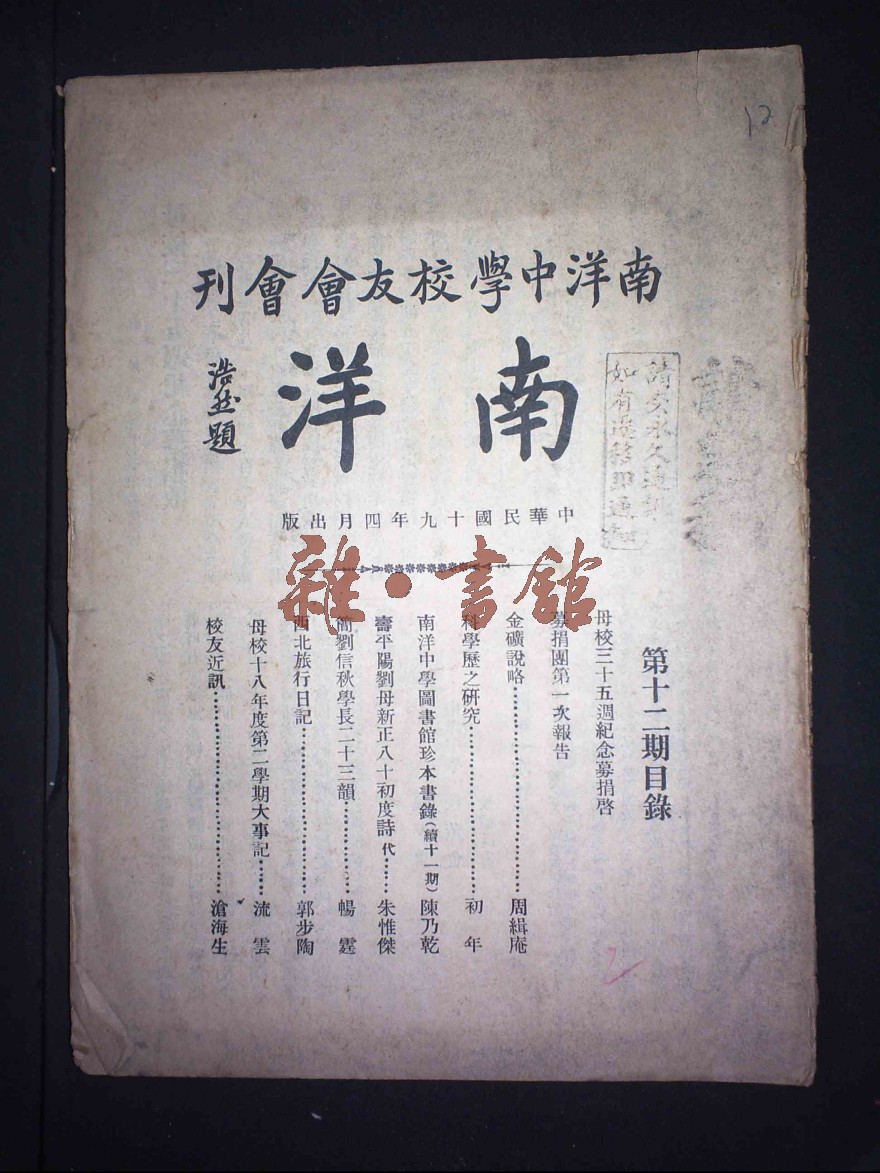 12
南洋中學校友會會刊
南洋
浩然題
中華民國十九年四月出版
雜·書館
第十二期目錄
母校三十五週紀念募捐啓
募捐團第一次報告
金礦説略……周緝庵
科學歷之研究……初年
南洋中學圖書館珍本書錄(續十一期)陳乃乾
壽平陽劉母新正八十初度詩代……朱惟傑
簡劉信秋學長二十三韻……暢霆
西北旅行日記……郭步陶
母校十八年度第二學期大事記……流雲
校友近訊……滄海生